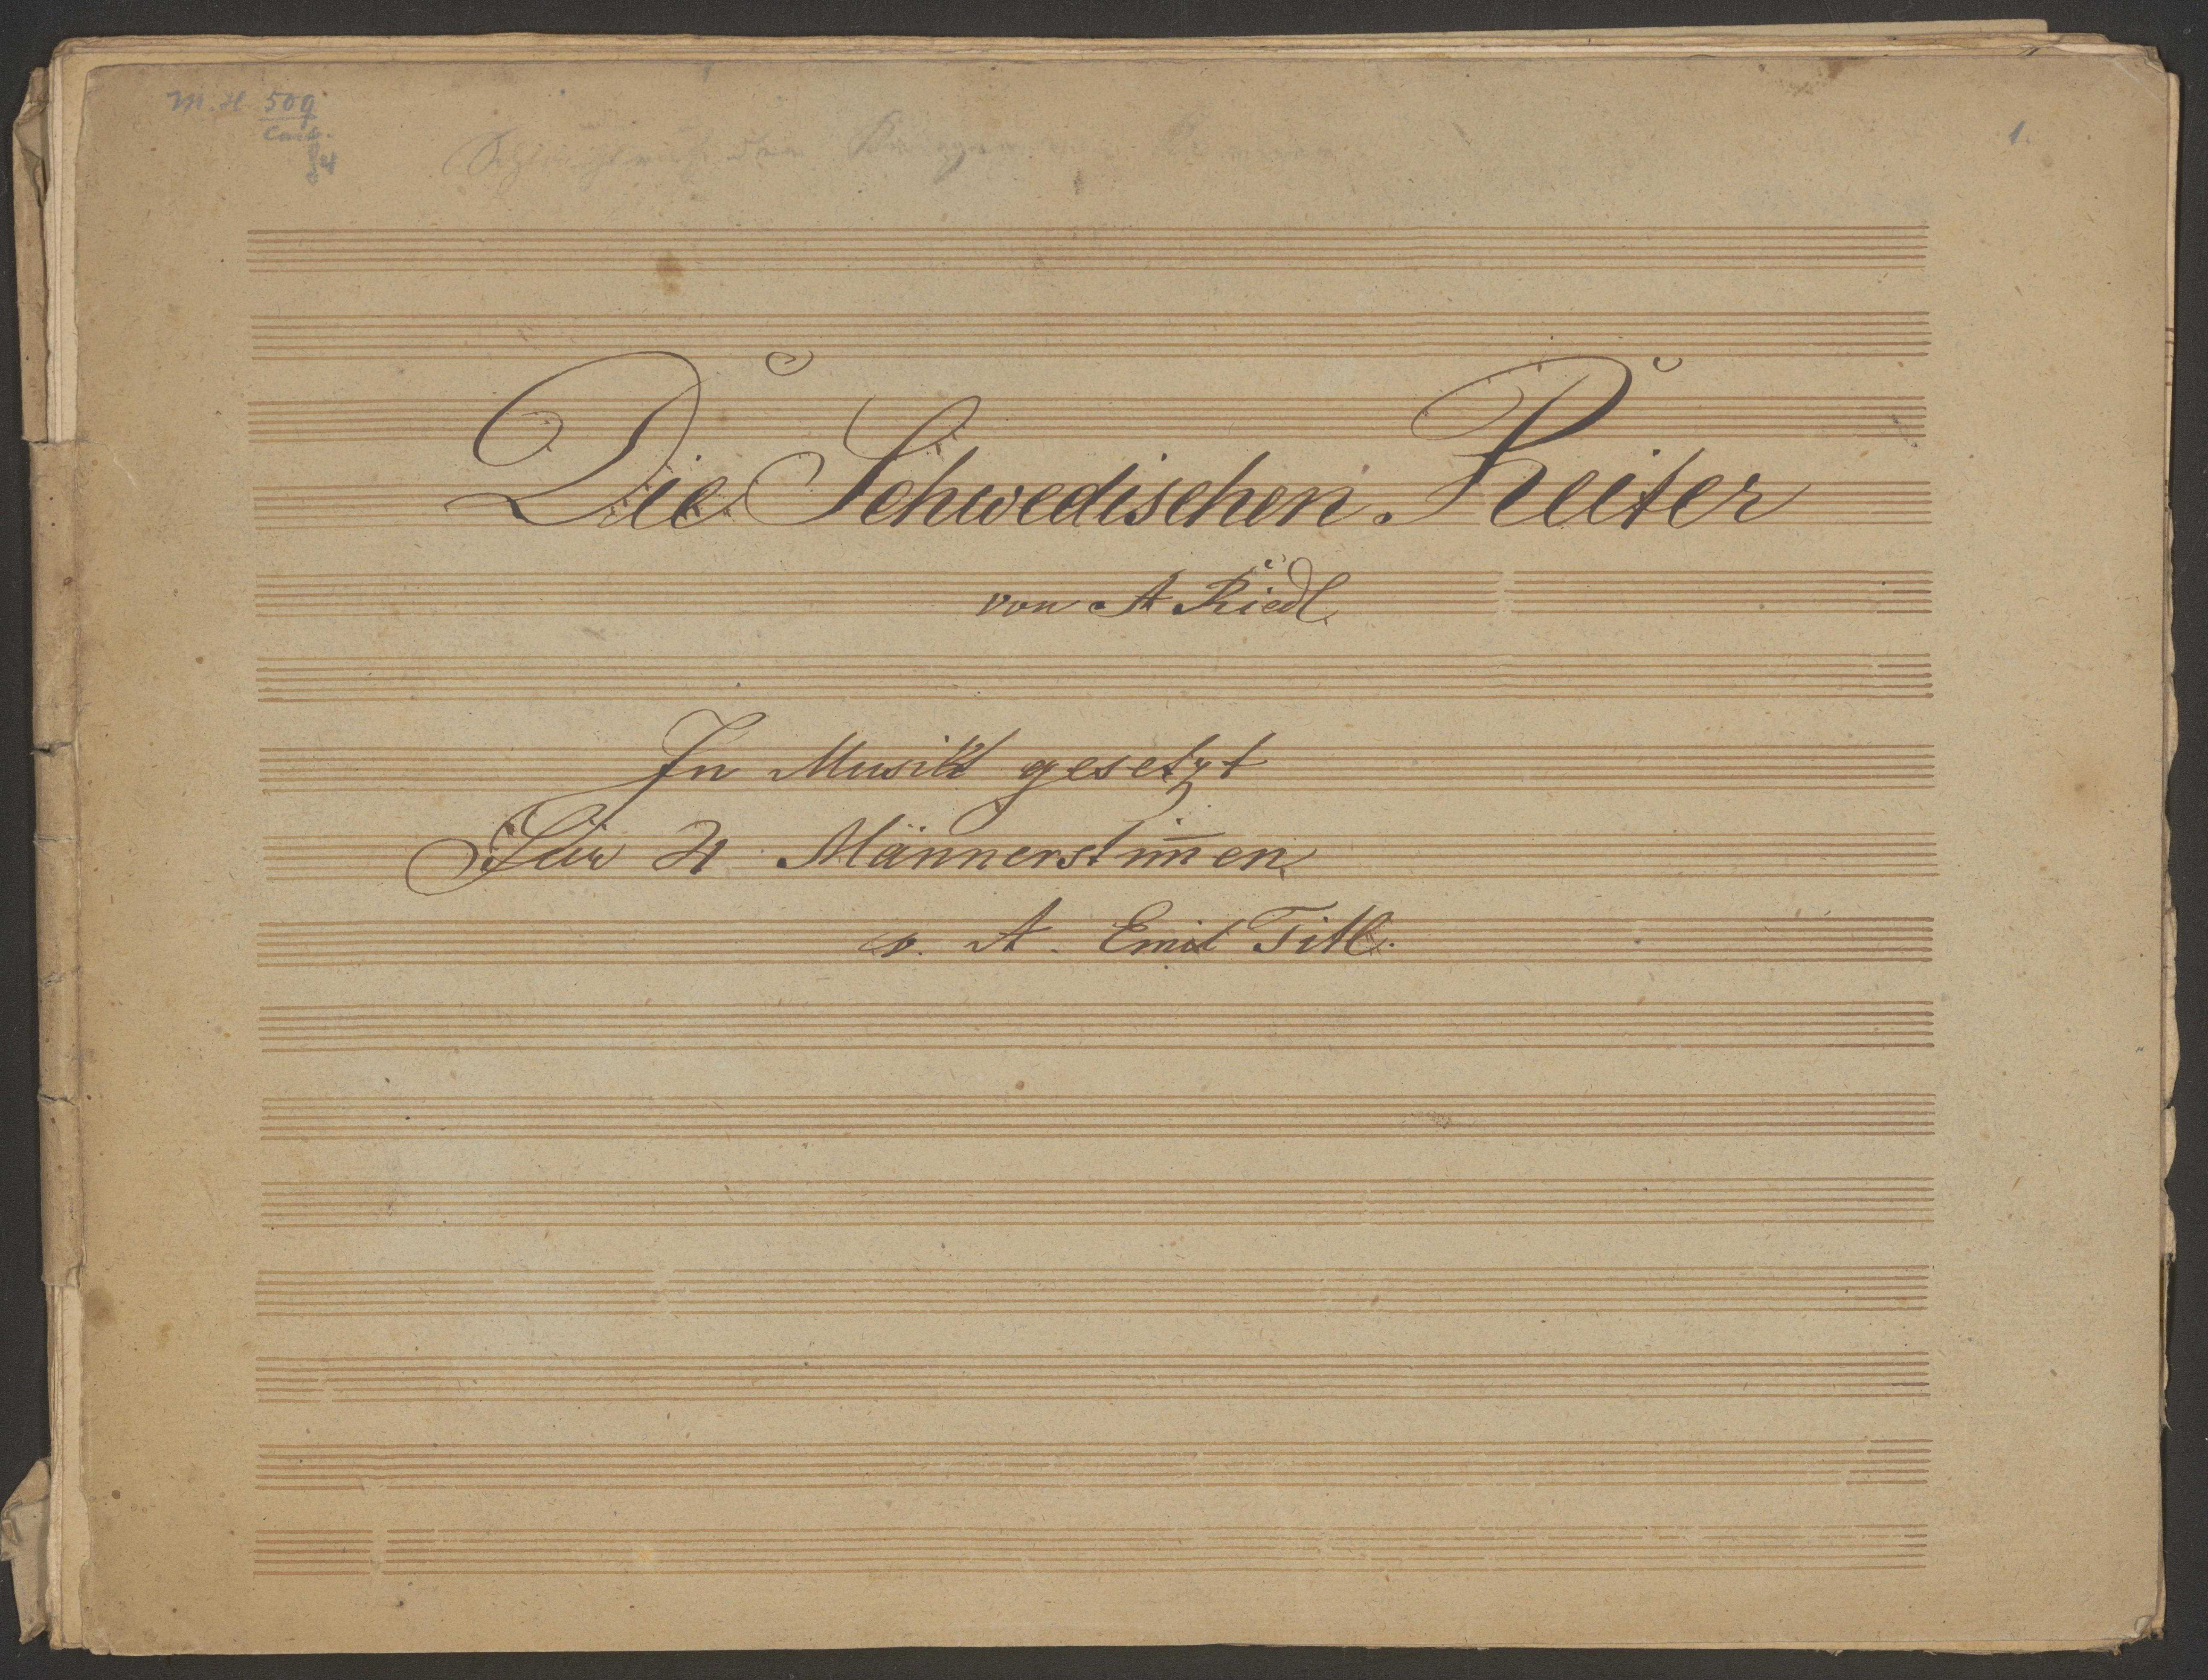 M.H. 509
1.
Die Schwedischen Reiter
von A Riedl
In Musik gesetzt
Für 4 Männerstim̄en
v. A. Emil Titl.